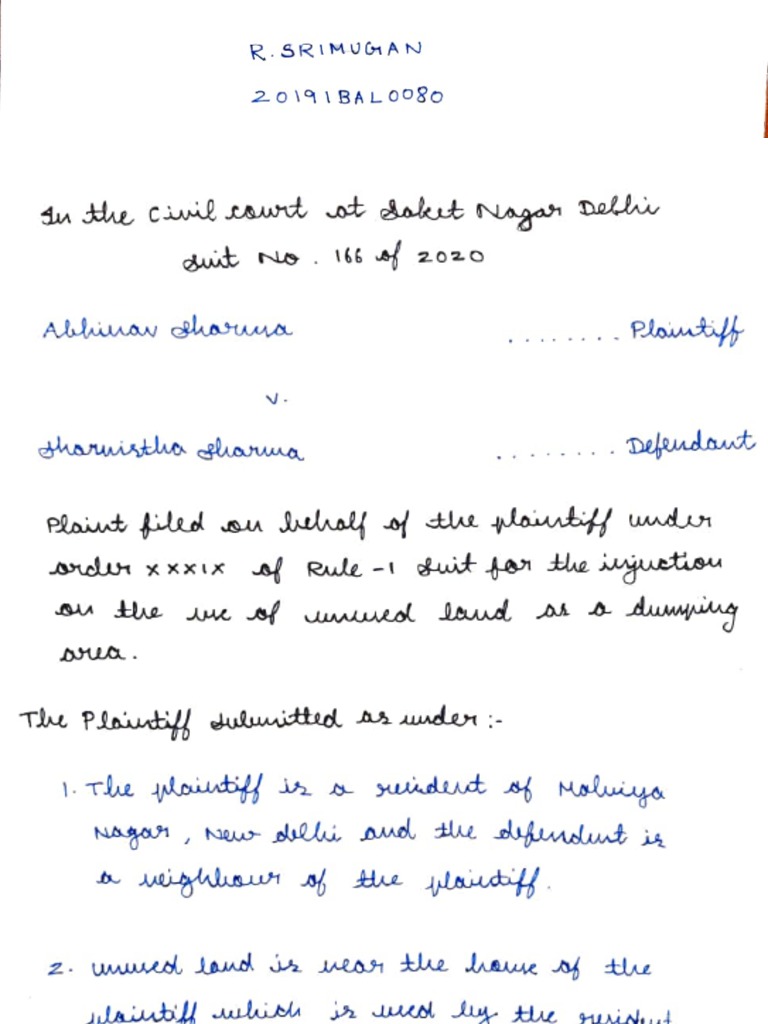 R. SRIMUGAN
20191BAL0080
In the Civil court at Saket Nagar Delhi
Suit No. 166 of 2020
Abhinav Sharma ........ Plaintiff
v.
Sharmistha Sharma ........ Defendant
Plaint filed on behalf of the plaintiff under
order XXXIX of Rule -1 Suit for the injuction
on the use of unused land as a dumping
area.
The Plaintiff submitted as under :-
1. The plaintiff is a resident of Malviya
Nagar, New delhi and the defendent is
a neighbour of the plaintiff.
2. unused land is near the house of the
plaintiff which is used by the resident